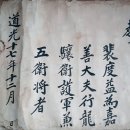 裴度益爲嘉
善大夫行龍
驤衛護軍兼
五衛將者
道光十二年十二月